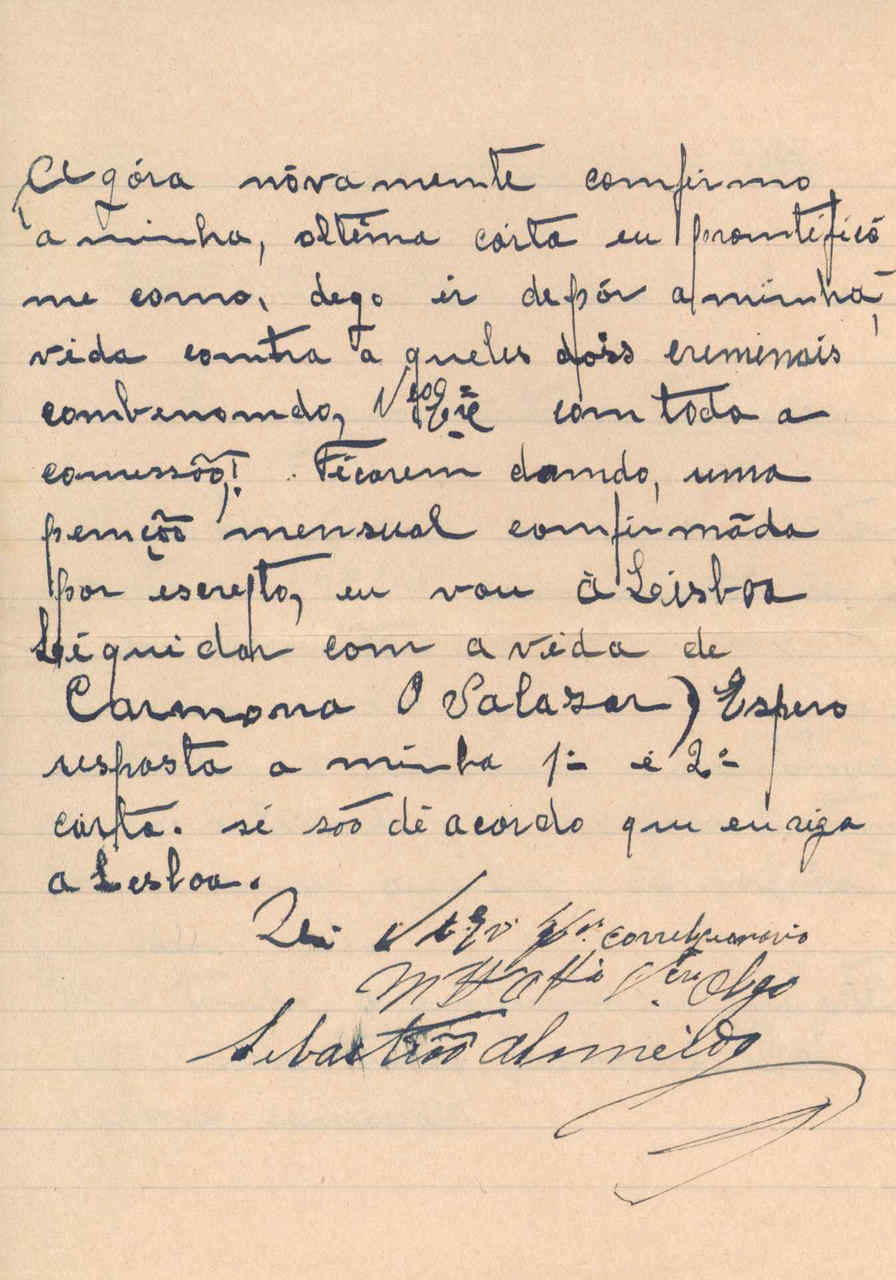 Agóra nóvamente comfirmo
a minha, oltéma carta eu promtificó
me como, dego ir depór a minha
vida contra a queles doiss creminais
combenomdo, com toda a
comissõo! Ficarem damdo, uma
pemçõo mensual comfirmāda
por escrepto, eu vou à Lisboa
Léquidar com a vida de
Carmona O Salazar) Espero
resposta a minha 1ª é 2ª
carta. sé sõo dé acordo que eu siga
a Lesboa.
De correlegeonario
Mtº Attº Obgo
Sebastiõo Almeido